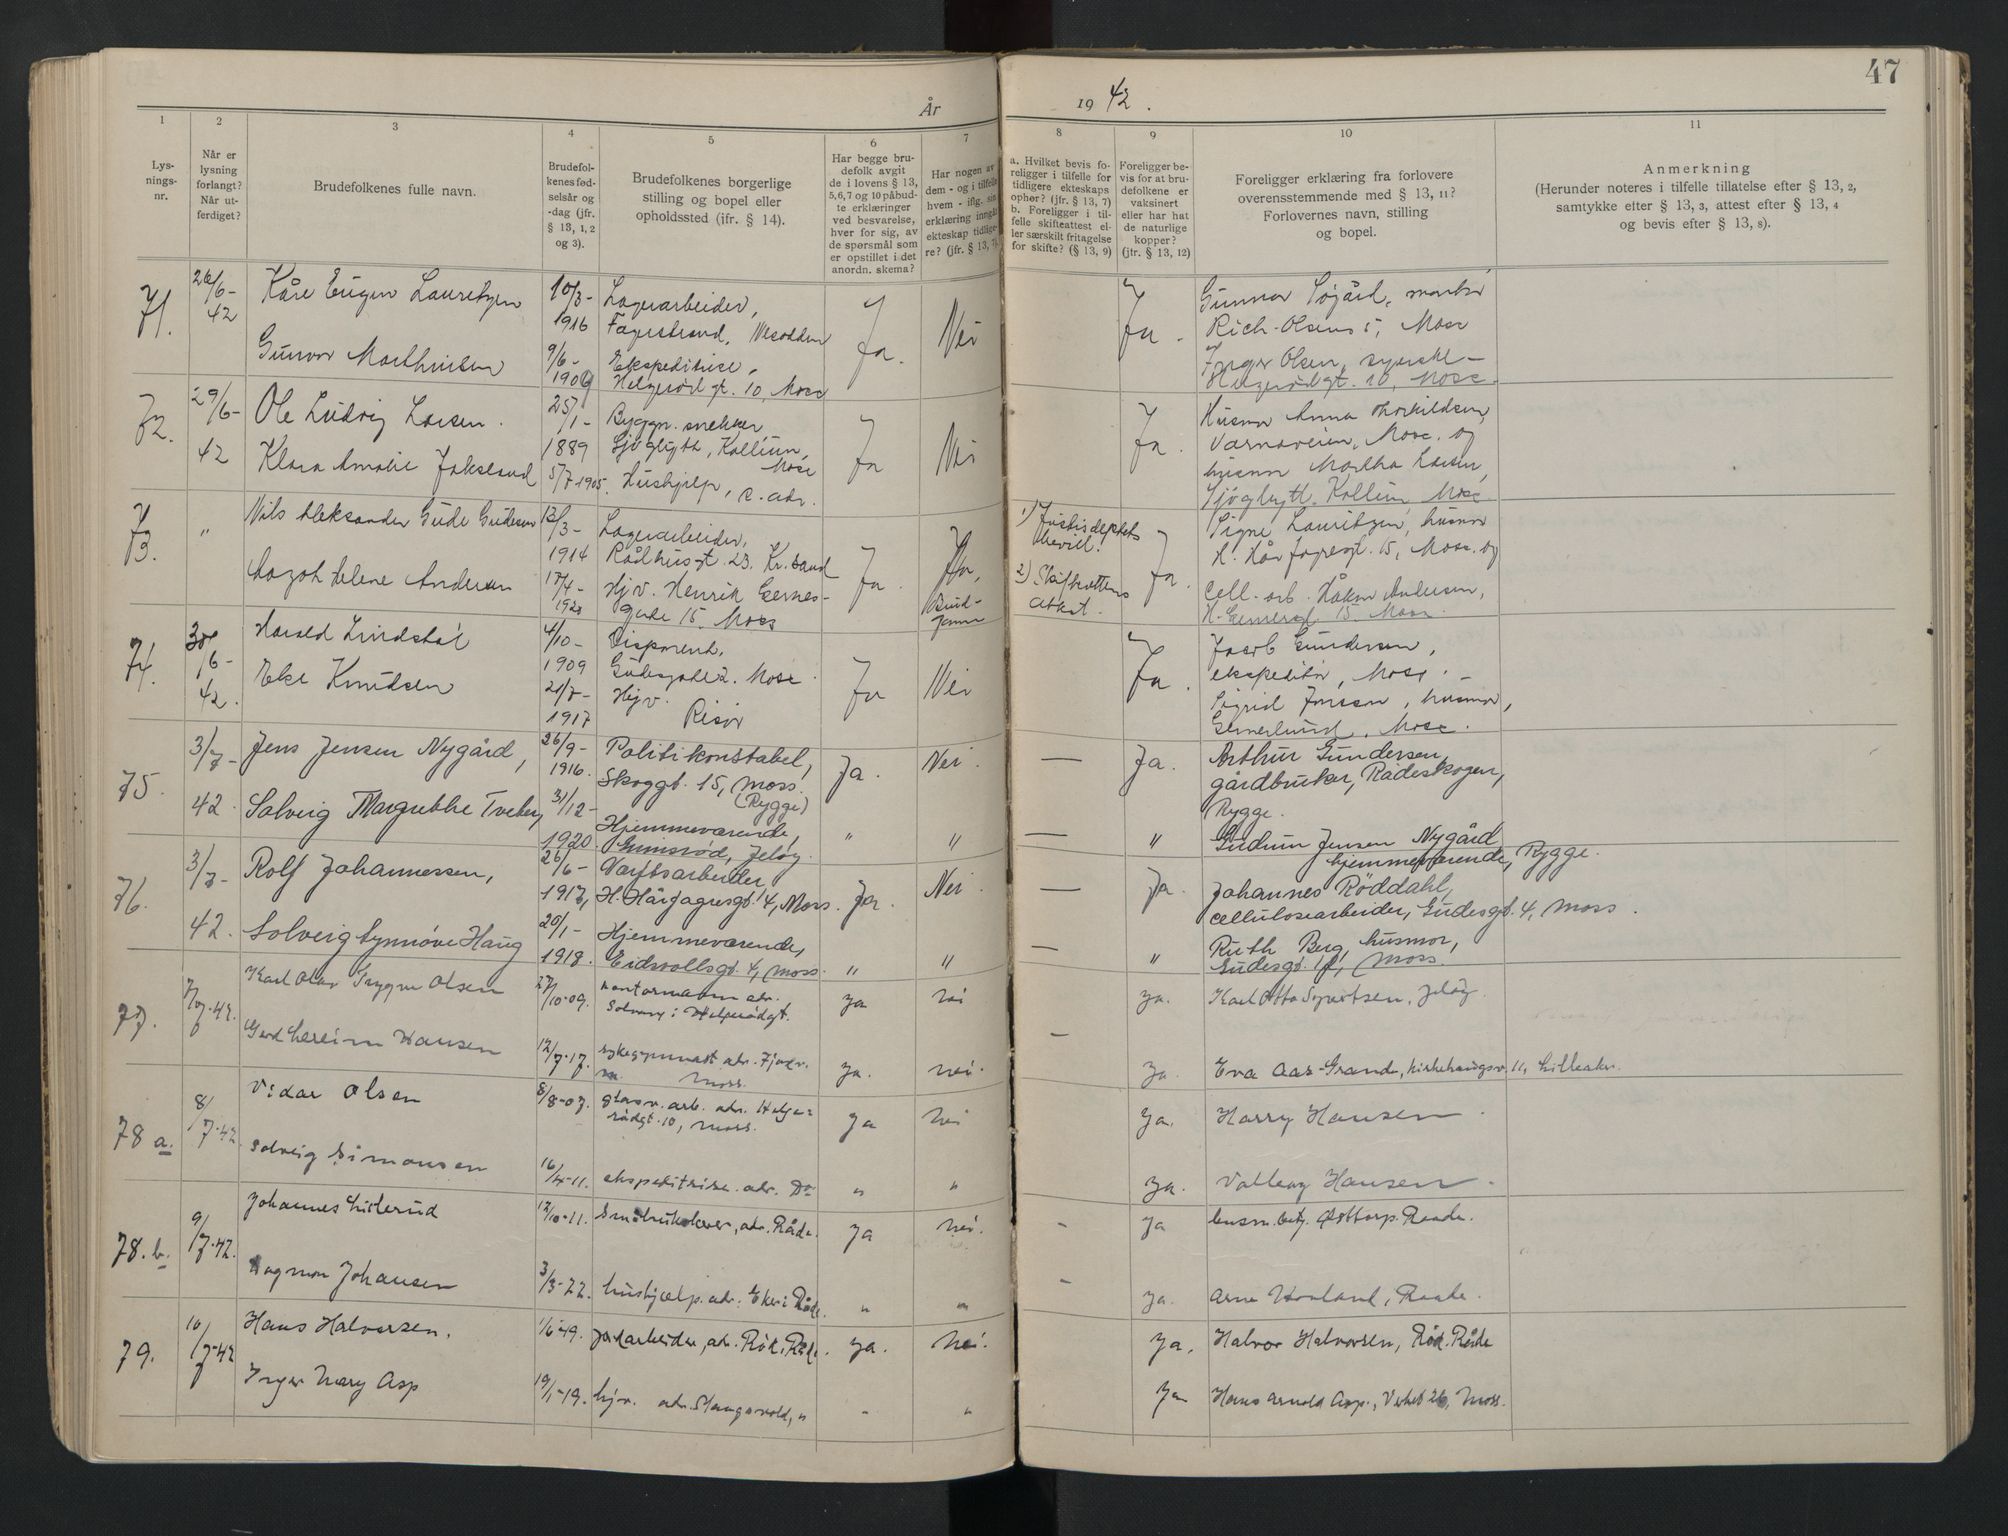 47
År
19 42.
1
2
3
4
5
6
7
8
9
10
11
Lys-
nings-
nr.
Når er
lysning
forlangt?
Når ut-
ferdiget?
Brudefolkenes fulle navn.
Brudefol-
kenes fød-
selsår og
-dag (jfr.
§ 13, 1, 2
og 3).
Brudefolkenes borgerlige
stilling og bopel eller
opholdssted (ifr. § 14).
Har begge bru-
defolk avgit
de i lovens § 13,
5, 6, 7 og 10 påbud-
te erklæringer
ved besvarelse,
hver for sig, av
de spørsmål som
er opstillet i det
anordn. skema?
Har nogen av
dem - og i tilfelle
hvem - iflg. sin
erklæring inngått
ekteskap tidlige-
re? (jfr. § 13, 7).
a. Hvilket bevis fo-
religger i tilfelle for
tidligere ekteskaps
ophør? (jfr. § 13, 7)
b. Foreligger i til-
felle skifteattest el-
ler særskilt fritagelse
for skifte? (§ 13, 9)
Foreligger be-
vis for at bru-
defolkene er
vaksinert
eller har hat
de naturlige
kopper?
(jfr. § 13, 12)
Foreligger erklæring fra forlovere
overensstemmende med § 13, 11?
Forlovernes navn, stilling
og bopel.
Anmerkning
(Herunder noteres i tilfelle tillatelse efter § 13, 2,
samtykke efter § 13, 3, attest efter § 13, 4
og bevis efter § 13, 8).
71.
26/6-
42
Kåre Eugen Lauritzen
Gunvor Marthinsen
10/3-
1916
9/6-
1909
Lagerarbeider,
Fagerstrand, Nesodden
Ekspeditrise,
Helgerødgt. 10, Moss
Ja.
Nei
Ja.
Gunnar Sogård, montør
Rich. Olsens, Moss
Inger Olsen, syerske -
Helgerødgt. 10, Moss.
72.
29/6-
42
Ole Ludvig Larsen.
Klara Amalie Jokserud
25/1-
1889
5/7 1905.
Byggn. snekker
Sjøglytt, Kallum,
Moss
Hushjelp, s. adr.
Ja
Nei
Ja.
Husmor Anna Thorkildsen,
Varnaveien, Moss. og
husmor Martha Larsen,
Sjøglytt, Kallum, Moss
73.
"
Nils Aleksander Gude Gudesen
Helene Andersen
12/3-
1914
17/4-
Lagerarbeider,
Rådhusgt. 23. Kr.sand
Hjv. Henrik Gerners-
gate 15, Moss
Ja.
Ja,
1) Justisdeptets
bevill.
2) Skifterettens
attest.
Ja.
Signe Lauritzen, husmor
H. Hårfagresgt. 15, Moss. og
cell. arb. Håkon Andersen,
H. Gernersgt 15. Moss.
74.
30/6-
42.
Harald Lindstøl
Else Knudsen
4/10-
1909
21/7-
1917
Disponent,
Gudesgate 2. Moss.
Hjv.
Risør
Ja
Nei
Ja.
Jacob Gundersen,
ekspeditør, Moss. -
Sigrid Jonsson, husmor,
Gernerlund, Moss.
75.
3/7-
42.
Jens Jensen Nygård,
Solveig Margrethe Tveter,
26/9-
1916.
31/12-
1920.
Politikonstabel,
Skoggt. 15, Moss.
(Rygge)
Hjemmeværende,
Grimsrød, Jeløy.
Ja.
Nei.
"
"
—
Ja.
—
"
Arthur Gundersen,
gårdbruker, Rådeskogen,
Rygge.
Gudrun Jensen Nygård
hjemmeværende, Rygge.
76.
3/7-
42.
Rolf Johannessen,
Solveig Synnøve Haug
26/6-
1917,
20/1-
1918.
Værftsarbeider,
H. Hårfagresgt. 4, Moss.
Hjemmeværende,
Eidsvollsgt. 4, Moss.
Ja.
Nei.
"
"
—
Ja.
—
"
Johannes Røddahl,
cellulosearbeider, Gudesgt. 4, Moss.
Ruth Berg, husmor,
Gudesgt. 1, Moss.
77.
7/7-42.
Karl Olav Trygve Olsen
Gerd Hansen
27/10-09.
12/7-17.
Kontormann adr.
Solvang i Helgerødgt.
sykegymnast adr.
Moss.
ja
nei
ja.
nei.
—
ja.
ja.
Karl Otto Syvertsen, Jeløy.
Eva Aas-Grande, Kirkehaugsv. 11, Lilleaker.
78 a.
8/7-42
Vidar Olsen
Solveig Simonsen
8/8-07.
16/4-11.
glassv. arb. adr. Helge-
rødgt. 10, Moss.
ekspeditrise. adr. Do
Ja
nei
"
"
Ja.
Ja.
Harry Hansen
Valborg Hansen
78.b.
9/7-42.
Johannes Listerud
Dagmar Johansen
12/10-11.
3/3-22.
Småbruker, adr. Råde.
hushjelp. adr: Eker i Råde.
Ja
nei.
"
"
-
-
ja
ja.
Råde.
Arne Hovland, Raade.
79.
10/7-42
Hans Halvorsen.
Inger Mary Asp
1/6-19.
19/1-19.
jordarbeider, adr. Rød, Råde.
hjv. adr. Slangsvold, "
ja.
nei.
"
"
Ja.
Ja
Halvor Halvorsen, Rød. Råde
Hans Arnold Asp, Verket 26, Moss.